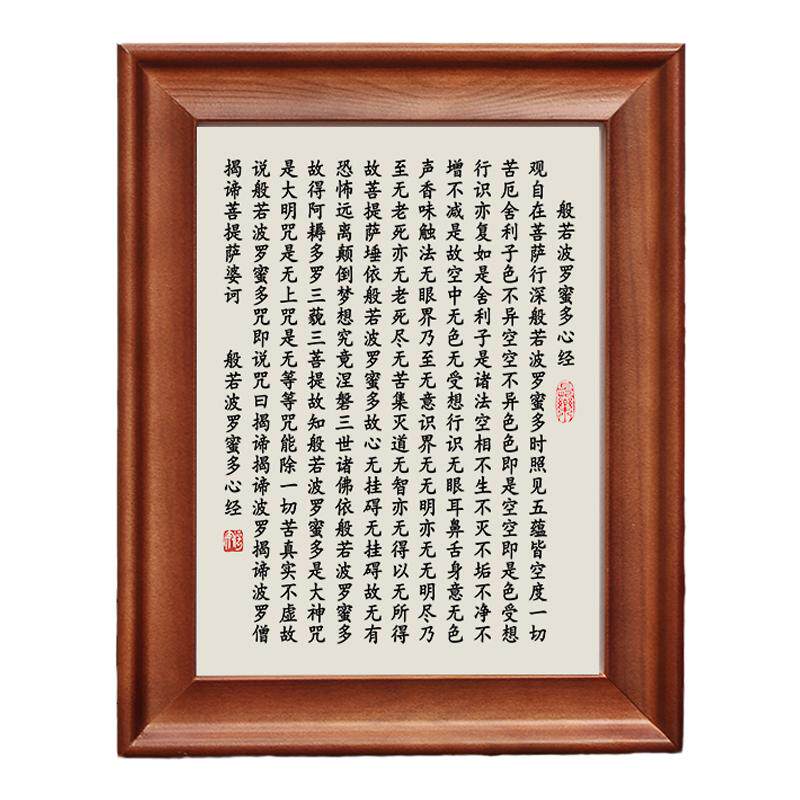 般若波罗蜜多心经
观自在菩萨行深般若波罗蜜多时照见五蕴皆空度一切
苦厄舍利子色不异空空不异色色即是空空即是色受想
行识亦复如是舍利子是诸法空相不生不灭不垢不净不
增不减是故空中无色无受想行识无眼耳鼻舌身意无色
声香味触法无眼界乃至无意识界无无明亦无无明尽乃
至无老死亦无老死尽无苦集灭道无智亦无得以无所得
故菩提萨埵依般若波罗蜜多故心无挂碍无挂碍故无有
恐怖远离颠倒梦想究竟涅磐三世诸佛依般若波罗蜜多
故得阿耨多罗三藐三菩提故知般若波罗蜜多是大神咒
是大明咒是无上咒是无等等咒能除一切苦真实不虚故
说般若波罗蜜多咒即说咒曰揭谛揭谛波罗揭谛波罗僧
揭谛菩提萨婆诃 般若波罗蜜多心经